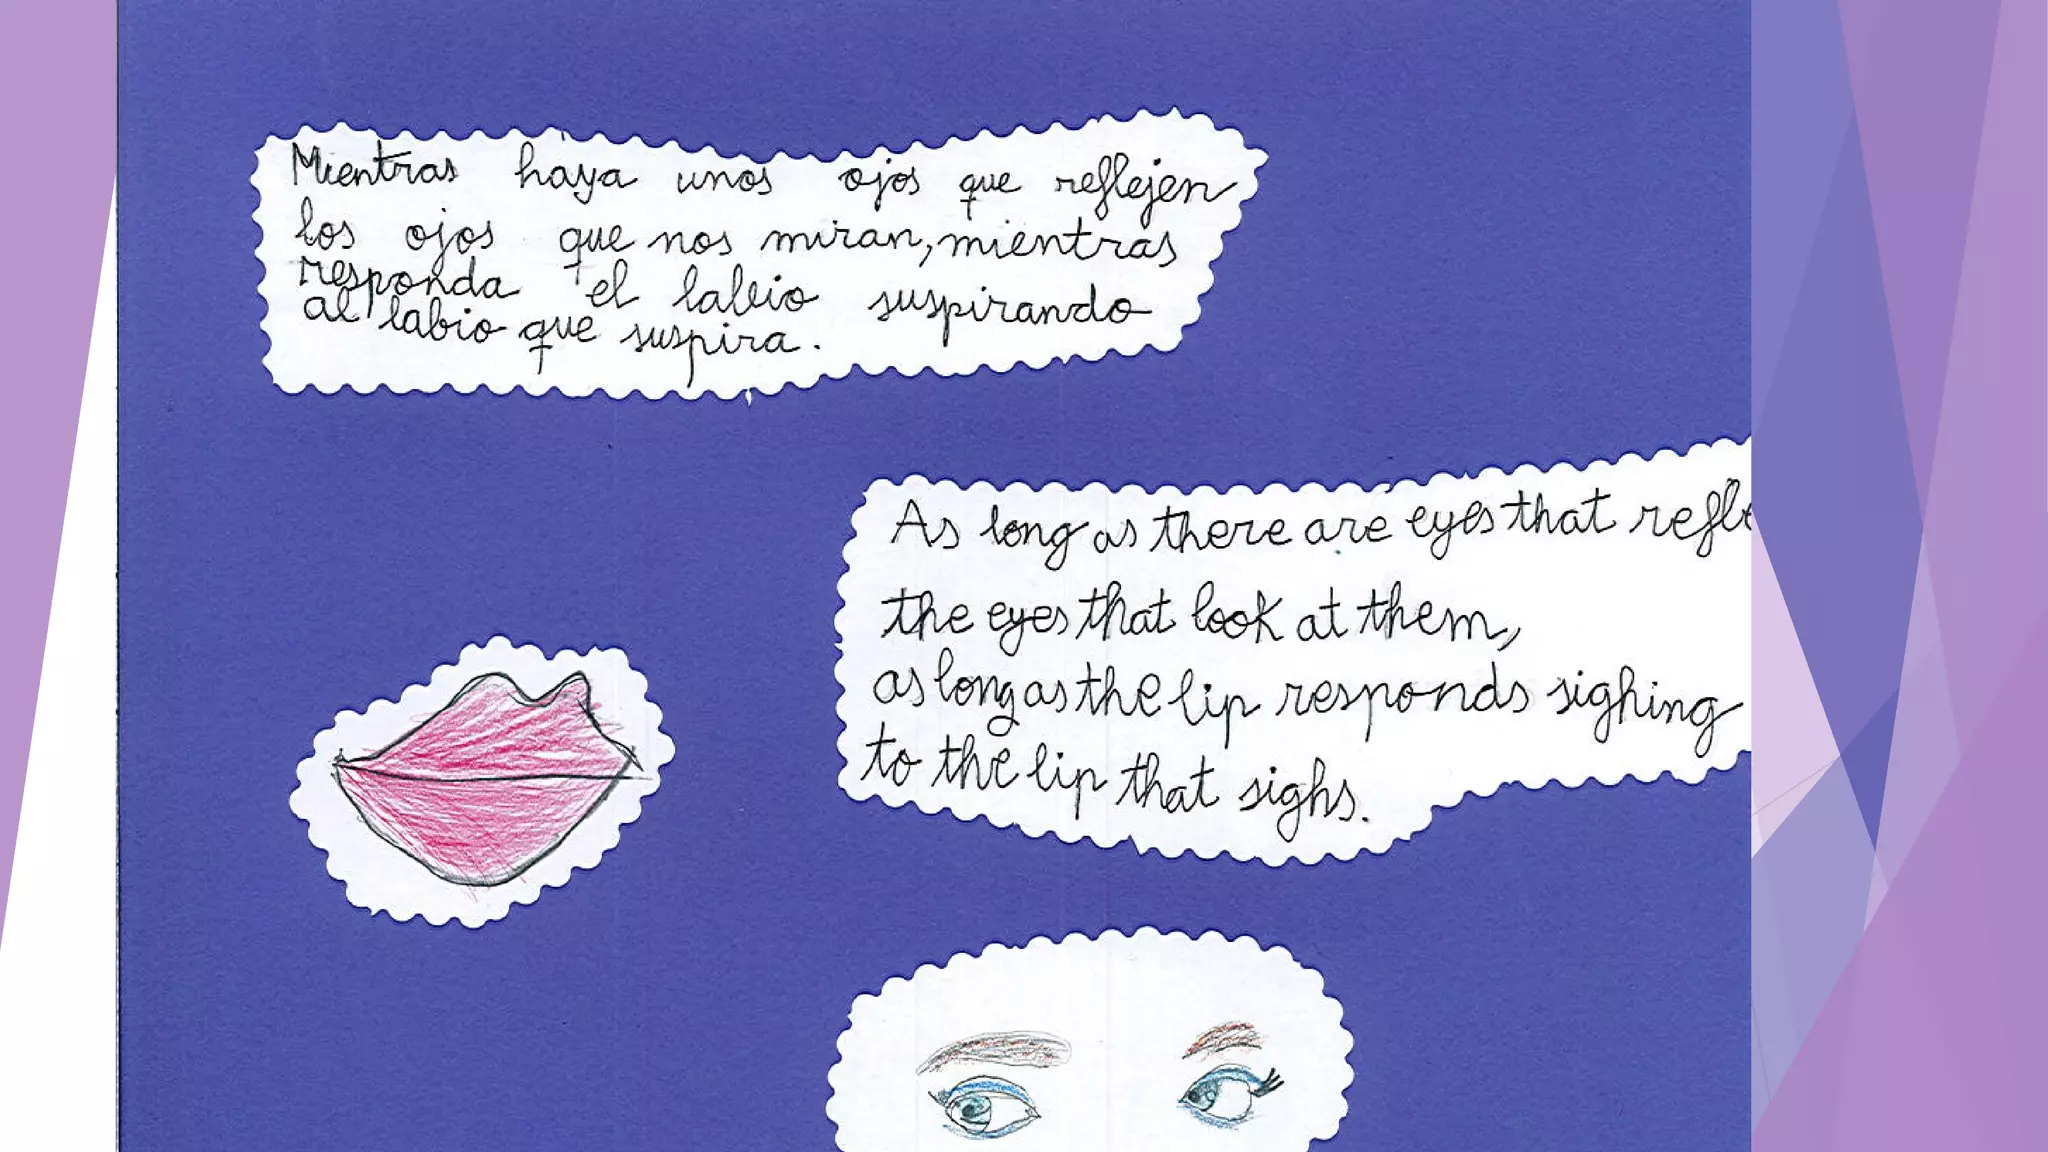 Mientras haya unos ojos que reflejen
los ojos que nos miran, mientras
responda el labio suspirando
al labio que suspira.
As long as there are eyes that refle
the eyes that look at them,
as long as the lip responds sighing
to the lip that sighs.